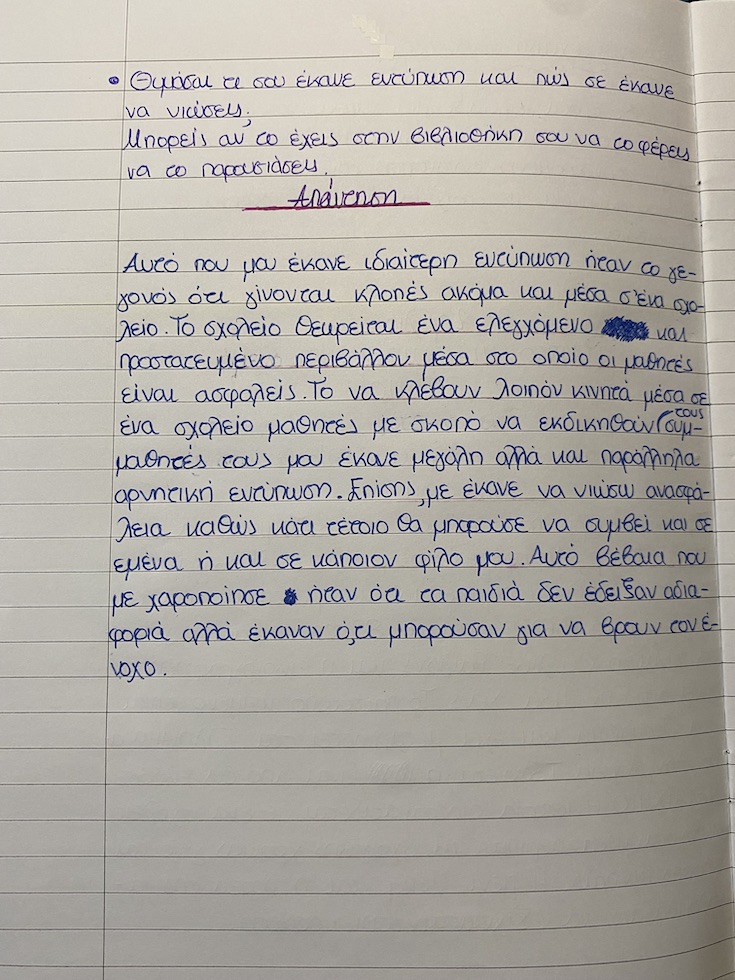 • Θυμήσαι τι σου έκανε εντύπωση και πώς σε έκανε
να νιώσεις;
Μπορείς αν το έχεις στην βιβλιοθήκη σου να το φέρεις
να το παρουσιάσεις.
Απάντηση
Αυτό που μου έκανε ιδιαίτερη εντύπωση ήταν το γε-
γονός ότι γίνονται κλοπές ακόμα και μέσα σ'ένα σχο-
λείο. Το σχολείο θεωρείται ένα ελεγχόμενο και
προστατευμένο περιβάλλον μέσα στο οποίο οι μαθητές
είναι ασφαλείς. Το να κλέβουν λοιπόν κινητά μέσα σε
ένα σχολείο μαθητές με σκοπό να εκδικηθούν τους συμ-
μαθητές τους μου έκανε μεγάλη αλλά και παράλληλα
αρνητική εντύπωση. Επίσης, με έκανε να νιώσω ανασφά-
λεια καθώς κάτι τέτοιο θα μπορούσε να συμβεί και σε
εμένα ή και σε κάποιον φίλο μου. Αυτό βέβαια που
με χαροποίησε ήταν ότι τα παιδιά δεν έδειξαν αδια-
φοριά αλλά έκαναν ό,τι μπορούσαν για να βρουν τον έ-
νοχο.